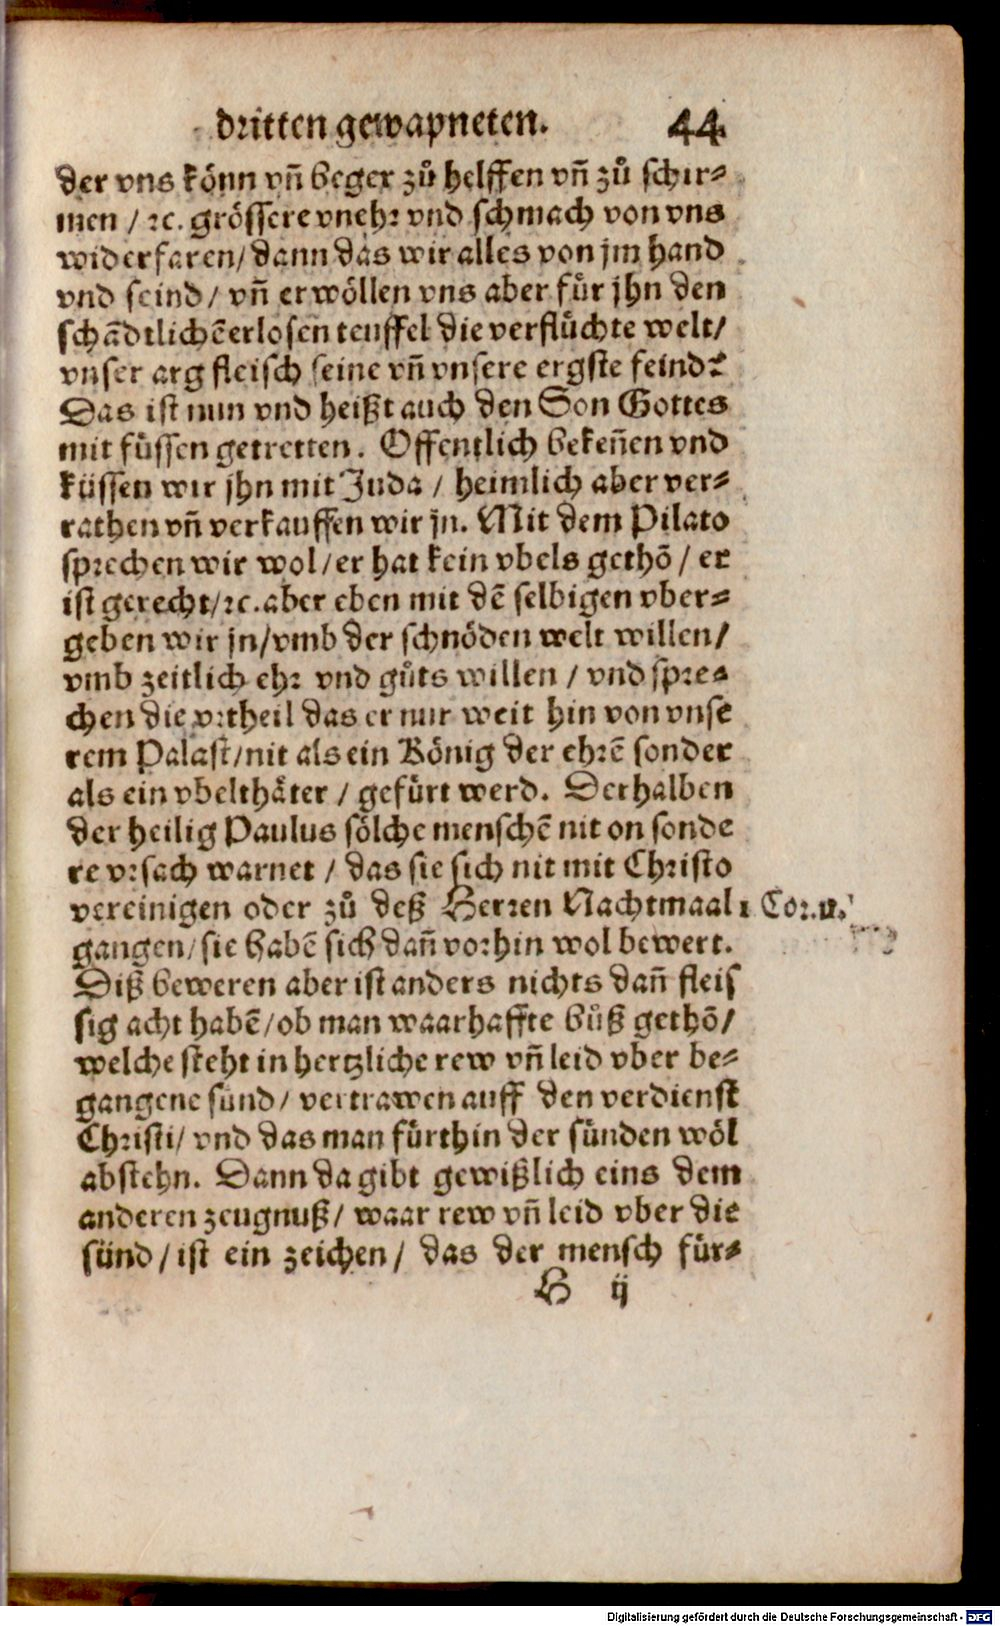 dritten gewapneten. 44.
der vns könn vñ beger zů helffen vñ zů schir⸗
men / ꝛc. grössere vnehr vnd schmach von vns
widerfaren/ dann das wir alles von jm hand
vnd seind/ vñ er wöllen vns aber für jhn den
schãdtlichẽ erlosen teuffel die verflůchte welt/
vnser arg fleisch seine vñ vnsere ergste feind?
Das ist nun vnd heißt auch den Son Gottes
mit füssen getretten. Offentlich bekeñen vnd
küssen wir jhn mit Juda / heimlich aber ver⸗
rathen vñ verkauffen wir jn. Mit dem Pilato
sprechen wir wol/ er hat kein vbels gethõ / er
ist gerecht/ ꝛc. aber eben mit dẽ selbigen vber⸗
geben wir jn/ vmb der schnöden welt willen/
vmb zeitlich ehr vnd gůts willen / vnd spre⸗
chen die vrtheil das er nur weit hin von vnse
rem Palast/ nit als ein König der ehrẽ sonder
als ein vbelthäter / gefürt werd. Derhalben
der heilig Paulus sölche menschẽ nit on sonde
re vrsach warnet / das sie sich nit mit Christo
vereinigen oder zů deß Herren Nachtmaal 1 Cor. 11.
gangen/ sie habẽ sich dañ vorhin wol bewert.
Diß beweren aber ist anders nichts dañ fleis
sig acht habẽ/ ob man waarhaffte bůß gethõ/
welche steht in hertzliche rew vñ leid vber be⸗
gangene sünd/ vertrawen auff den verdienst
Christi/ vnd das man fürthin der sünden wöl
abstehn. Dann da gibt gewißlich eins dem
anderen zeugnuß/ waar rew vñ leid vber die
sünd/ ist ein zeichen/ das der mensch für⸗
H ij
Digitalisierung gefördert durch die Deutsche Forschungsgemeinschaft - DFG